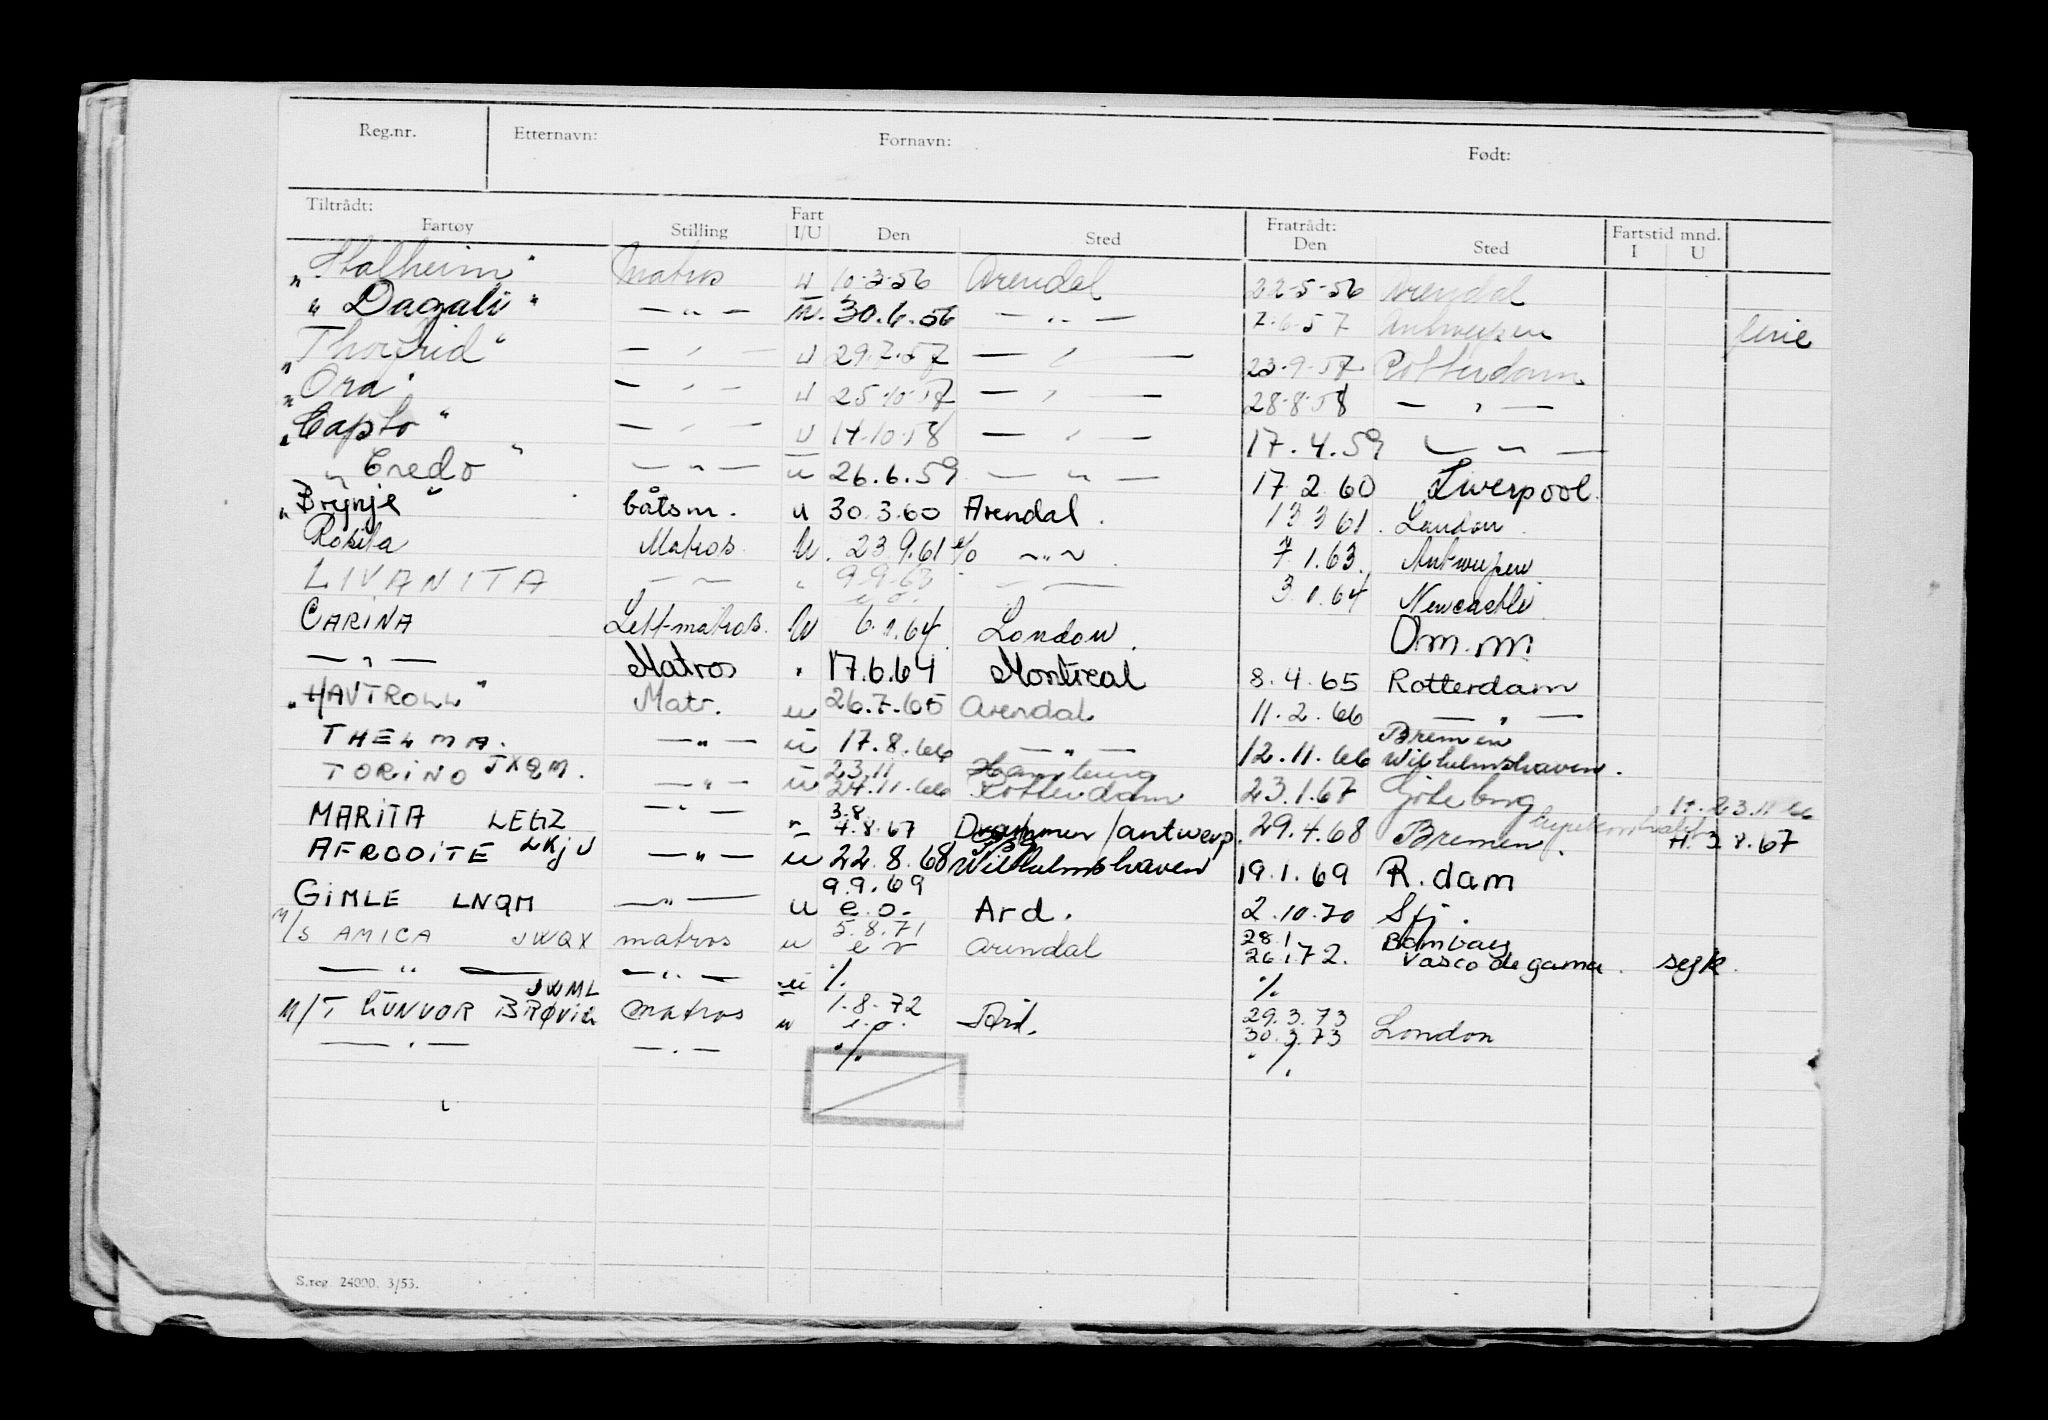 Reg.nr. Etternavn: Fornavn: Født:
Tiltrådt: Fratrådt:
Fartøy Stilling Fart I/U Den Sted Den Sted Fartstid mnd. I U
"Stalheim" Matros u 10-3-56 Arendal 22-5-56 Arendal
"Dagali" — " — u. 30.6.56 — " — 7-6-57 Antwerpen ferie
"Thorfrid" — " — u 29.7.57 — " — 23-9-57 Rotterdam
"Ora" — " — u 25-10-57 — " — 28-8-58 — " —
"Capto" — " — u 14-10-58 — " — 17.4.59 — " —
"Credo" — " — u 26.6.59 — " — 17 2 60 Liverpool
"Brynje" båtsm. u 30.3.60 Arendal. 13 3 61. London.
Rosita Matros. U. 23.9.61 e/o ~ " ~ 7.1.63. Antwerpen
LIVANITA — " — " 9.9.63 e.o. — " — 3.1.64 Newcastle
CARINA Lett-matros. U 6.1.64 London. Om.m.
— " — Matros " 17.6.64 Montreal 8.4.65 Rotterdam
"HAVTROLL" Matr. u 26.7.65 Arendal 11.2.66 — " —
THELMA. — " — u 17.8.66 — " — 12.11.66 Bremen Wilhelmshaven.
TORINO JXQM. — " — u 23.11 24.11.66 Hamburg Rotterdam 23.1.67 Göteborg H. 23.11.66
MARITA LEGZ — " — " 3.8. 4.8.67 Drammen/antwerp. 29.4.68 Bremen. H. 3.8.67
AFRODITE LKJU — " — u 22.8.68 Wilhelmshaven 19.1.69 R.dam
GIMLE LNQM — " — u 9.9.69 e.o. Ard. 2.10.70 Sfj.
M/S AMICA JWQX matros u 5.8.71 e r arendal 28.1 26.1.72. Bombay Vasco de gama. sejk.
— " — — " — u % %
M/T GUNVOR BRØVIG JWML matros u 1.8.72 e.o. Ard. 29.3.73 30.3.73 London
— " — — " — % %
S.reg. 24000. 3/53.